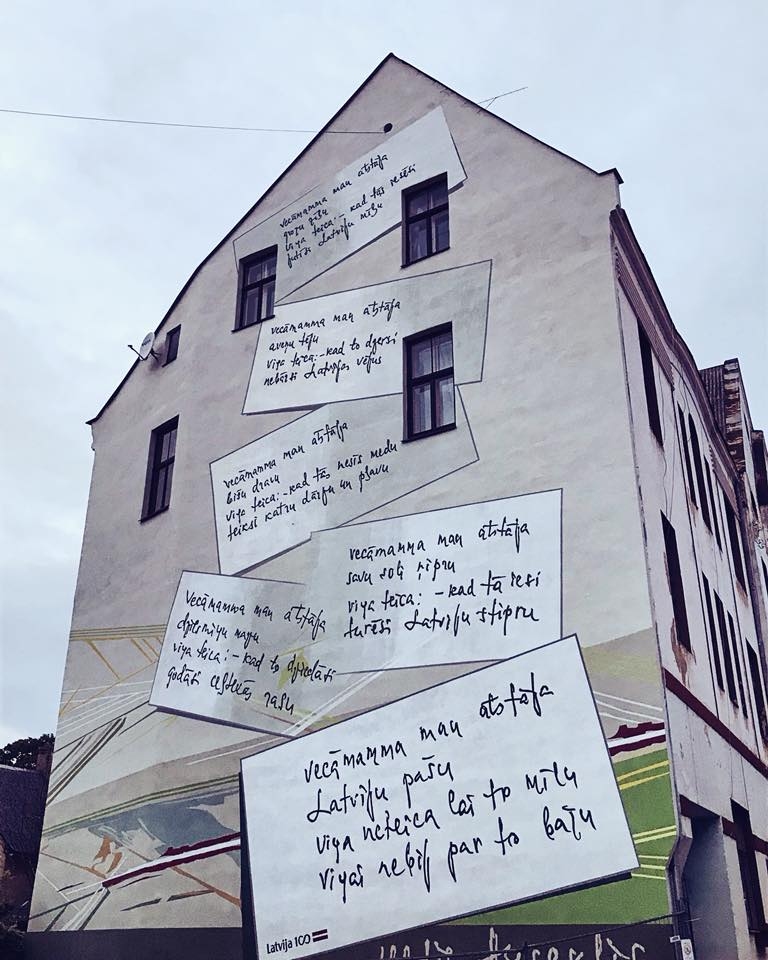 vecāmamma man atstāja
zīļu
viņa teica: - kad tās
jutīsi Latviju mīļu
vecāmamma man atstāja
aveņu tēju
viņa teica: - kad to dzersi
Latvijas vējus
vecāmamma man atstāja
bišu dravu
viņa teica: - kad tās nesīs medu
teiksi katru dārzu un pļavu
vecāmamma man atstāja
savu soli ņipru
viņa teica: - kad tā iesi
turēsi Latviju stipru
vecāmamma man atstāja
dziesmiņu
viņa teica: - kad to dziedāsi
godāsi ceļtekās rasu
vecāmamma man atstāja
Latviju pašu
viņa neteica lai to mīlu
viņai nebij par to bažu
Latvija 100